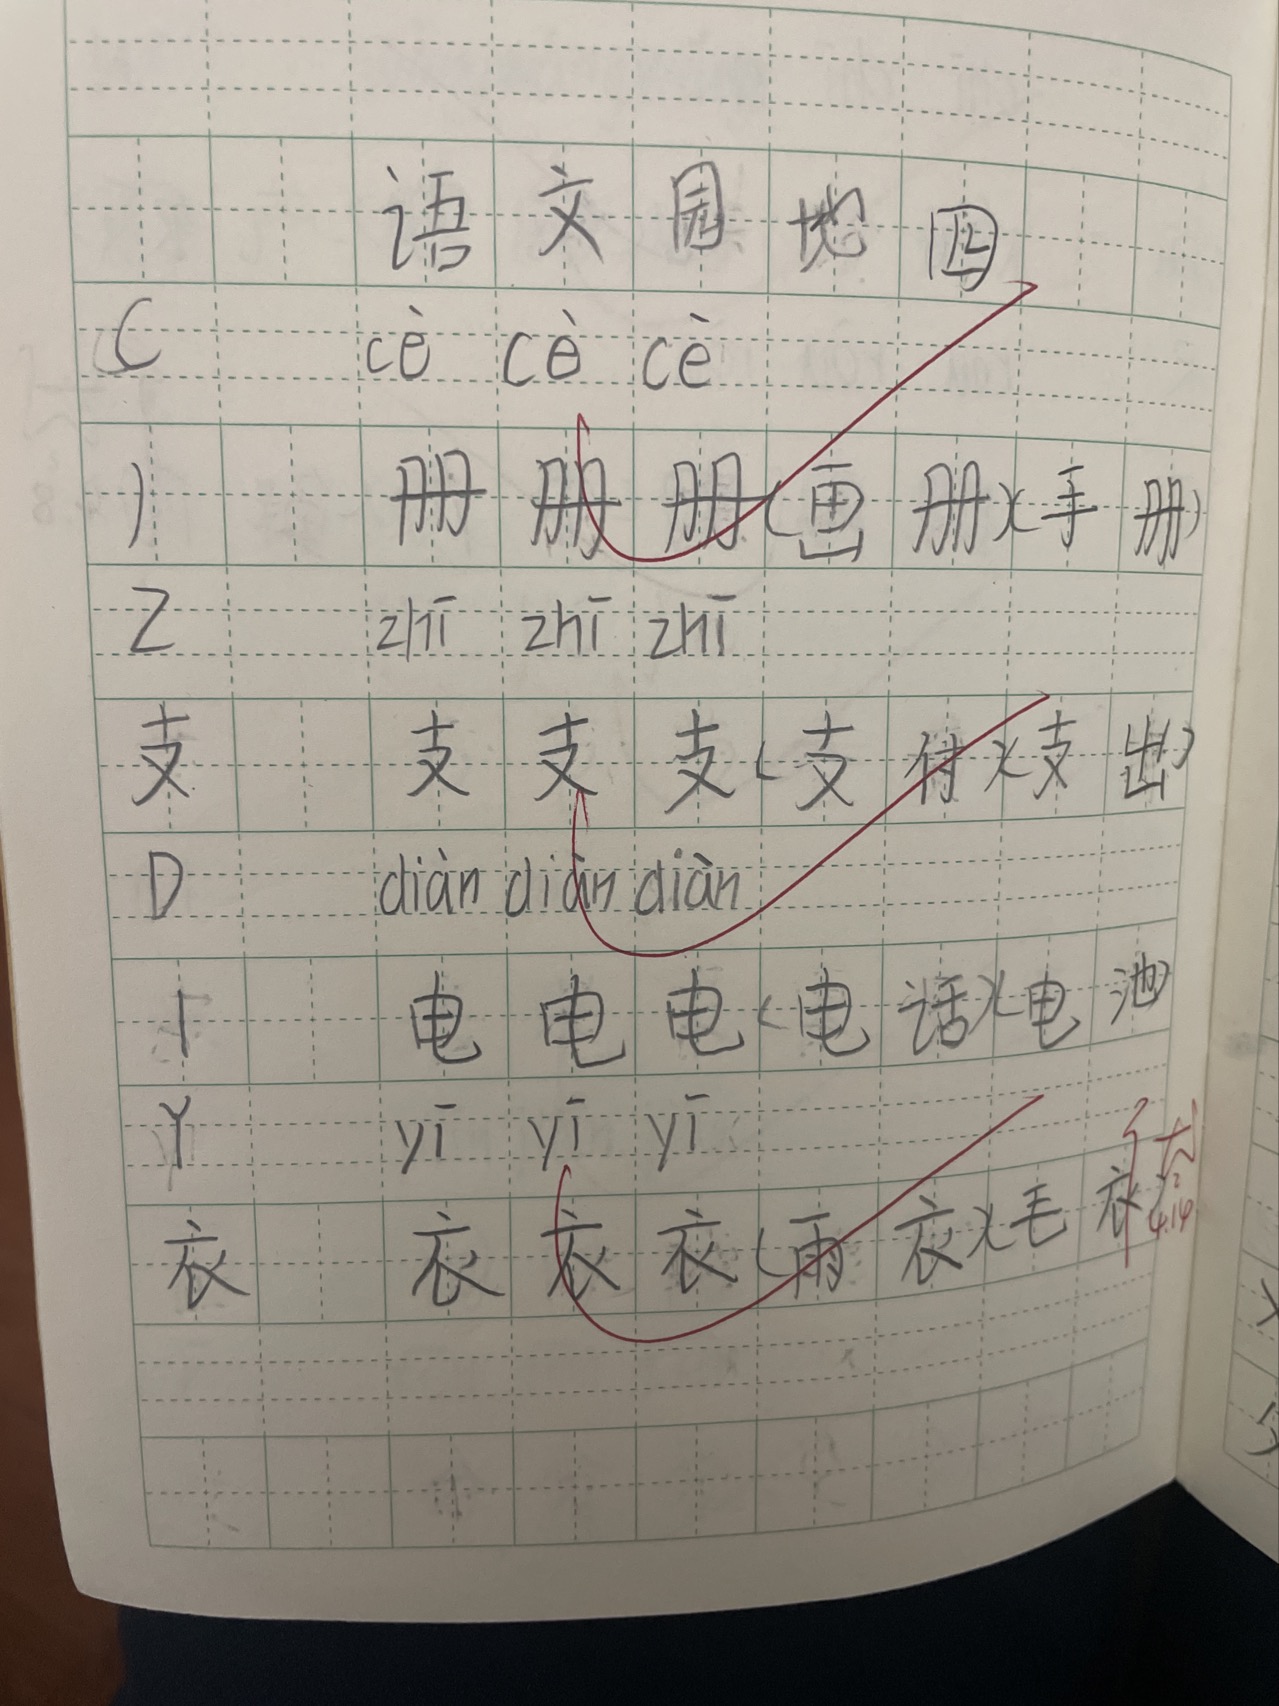 语文园地四
C cè cè cè
丿 册 册 册 (画册)(手册)
Z zhī zhī zhī
支 支 支 支 (支付)(支出)
D diàn diàn diàn
丨 电 电 电 (电话)(电池)
Y yī yī yī
衣 衣 衣 衣 (雨衣)(毛衣)
4.14